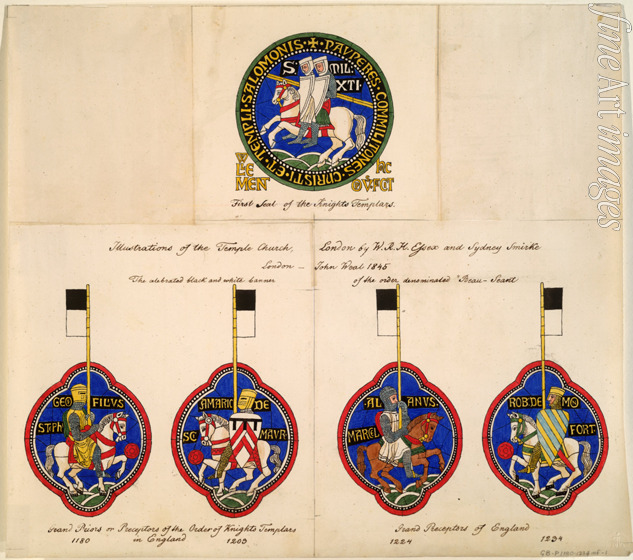 ✠ PAUPERES · COMMILITONES · CHRISTI · ET · TEMPLI · SALOMONIS
S: MIL:
XTI
LE
MENT
First Seal of the Knights Templars.
Illustrations of the Temple Church, London by W. R. H. Essex and Sydney Smirke
London — John Weal 1845
The celebrated black and white banner of the order denominated "Beau-Seant
GEO FILVS
STPH
AMARIC DE
SC MAVR
AL ANVS
MARCEL
ROB: DE MO
FORT
Grand Priors or Preceptors of the Order of Knights Templars
in England
1180 1203
Grand Preceptors of England
1224 1234
fine Art images